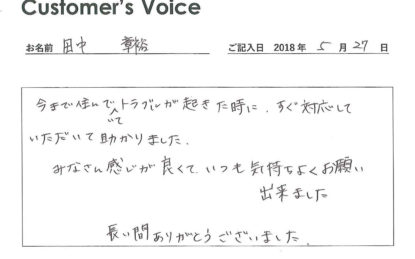 Customer's Voice
お名前 田中 章裕 ご記入日 2018 年 5 月 27 日
今まで住んでいてトラブルが起きた時に、すぐ対応して
いただいて助かりました。
みなさん感じが良くて、いつも気持ちよくお願い
出来ました
長い間ありがとうございました。